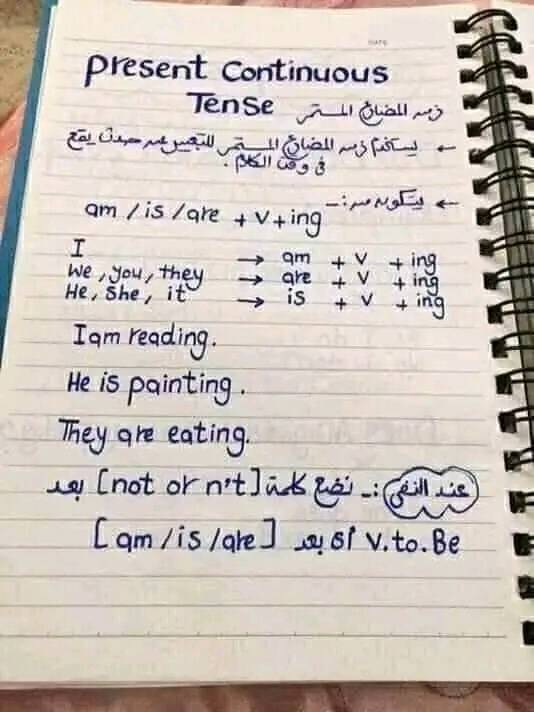 DATE
Present Continuous
Tense زمن المضارع المستمر
← يستخدم زمن المضارع المستمر للتعبير عن حدث يقع
فى وقت الكلام .
← يتكون من :-
am / is / are + v + ing
I → am + v + ing
We, you, they → are + v + ing
He, She, it → is + v + ing
I am reading.
He is painting.
They are eating.
عند النفى :- نضع كلمة [not or n't] بعد
[am / is / are] أى بعد V. to. Be